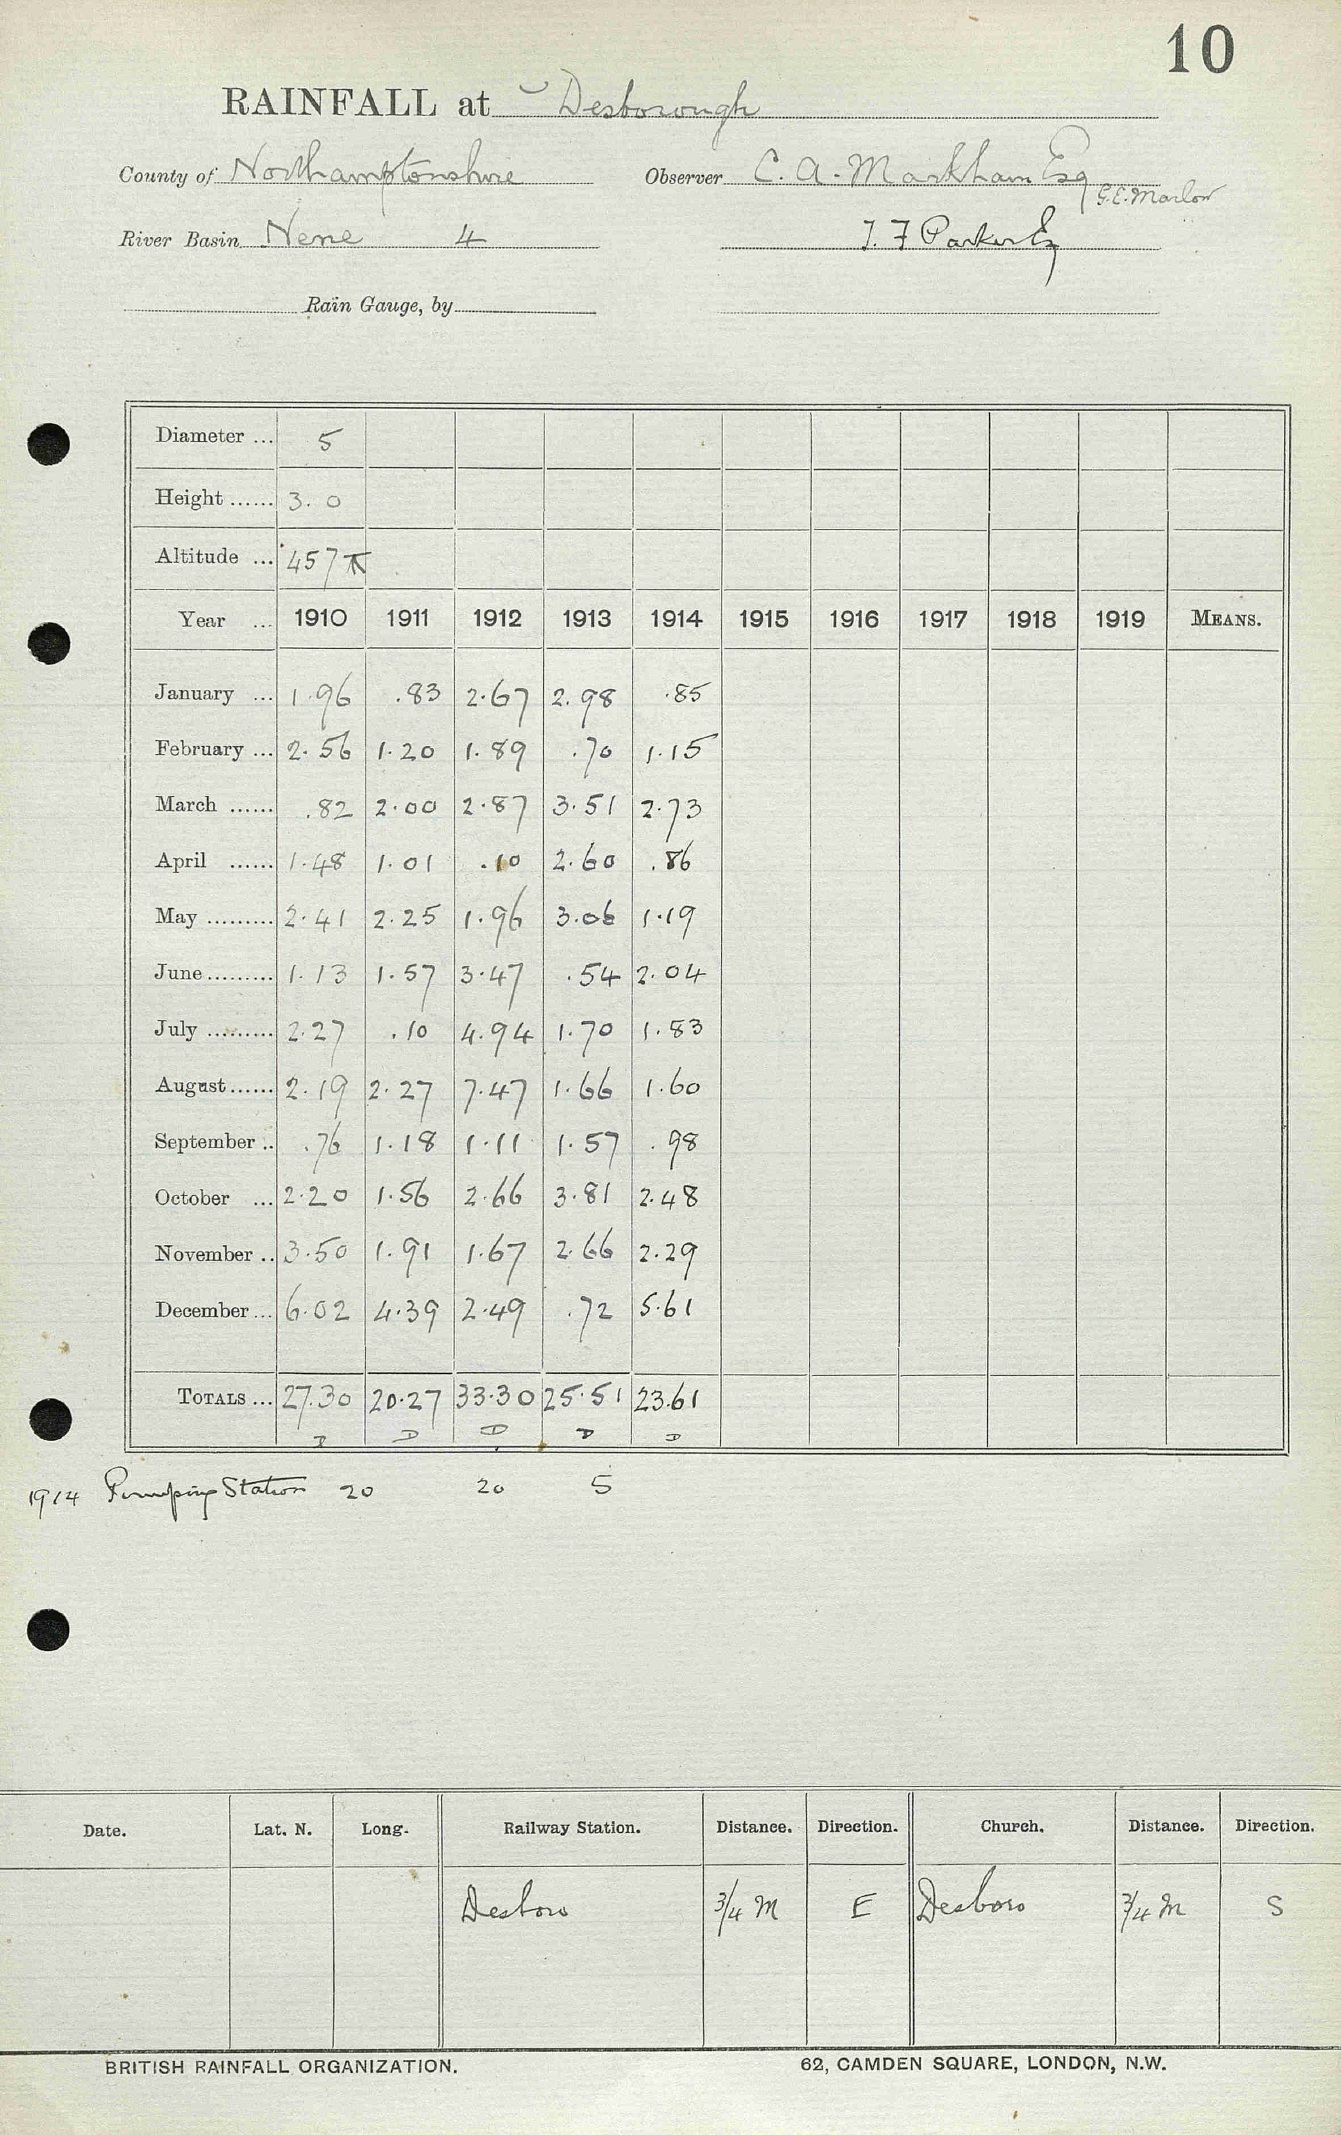 10
RAINFALL at Desborough
County of Northamptonshire Observer C. A. Markham Esq G.E. Marlow
River Basin Nene 4 T. F Parker Esq
Rain Gauge, by
Diameter ... 5
Height ...... 3. 0
Altitude ... 457
Year ... 1910 1911 1912 1913 1914 1915 1916 1917 1918 1919 MEANS.
January ... 1.96 .83 2.67 2.98 .85
February ... 2.56 1.20 1.89 .70 1.15
March ...... .82 2.00 2.87 3.51 2.73
April ...... 1.48 1.01 .10 2.60 .86
May ......... 2.41 2.25 1.96 3.06 1.19
June ......... 1.13 1.57 3.47 .54 2.04
July ......... 2.27 .10 4.94 1.70 1.83
August ...... 2.19 2.27 7.47 1.66 1.60
September .. .76 1.18 1.11 1.57 .98
October ... 2.20 1.56 2.66 3.81 2.48
November .. 3.50 1.91 1.67 2.66 2.29
December ... 6.02 4.39 2.49 .72 5.61
TOTALS ... 27.30 20.27 33.30 25.51 23.61
D D D D D
1914 Pumping Station 20 20 5
Date. Lat. N. Long. Railway Station. Distance. Direction. Church. Distance. Direction.
Desboro 3/4 M E Desboro 3/4 M S
BRITISH RAINFALL ORGANIZATION. 62, CAMDEN SQUARE, LONDON, N.W.